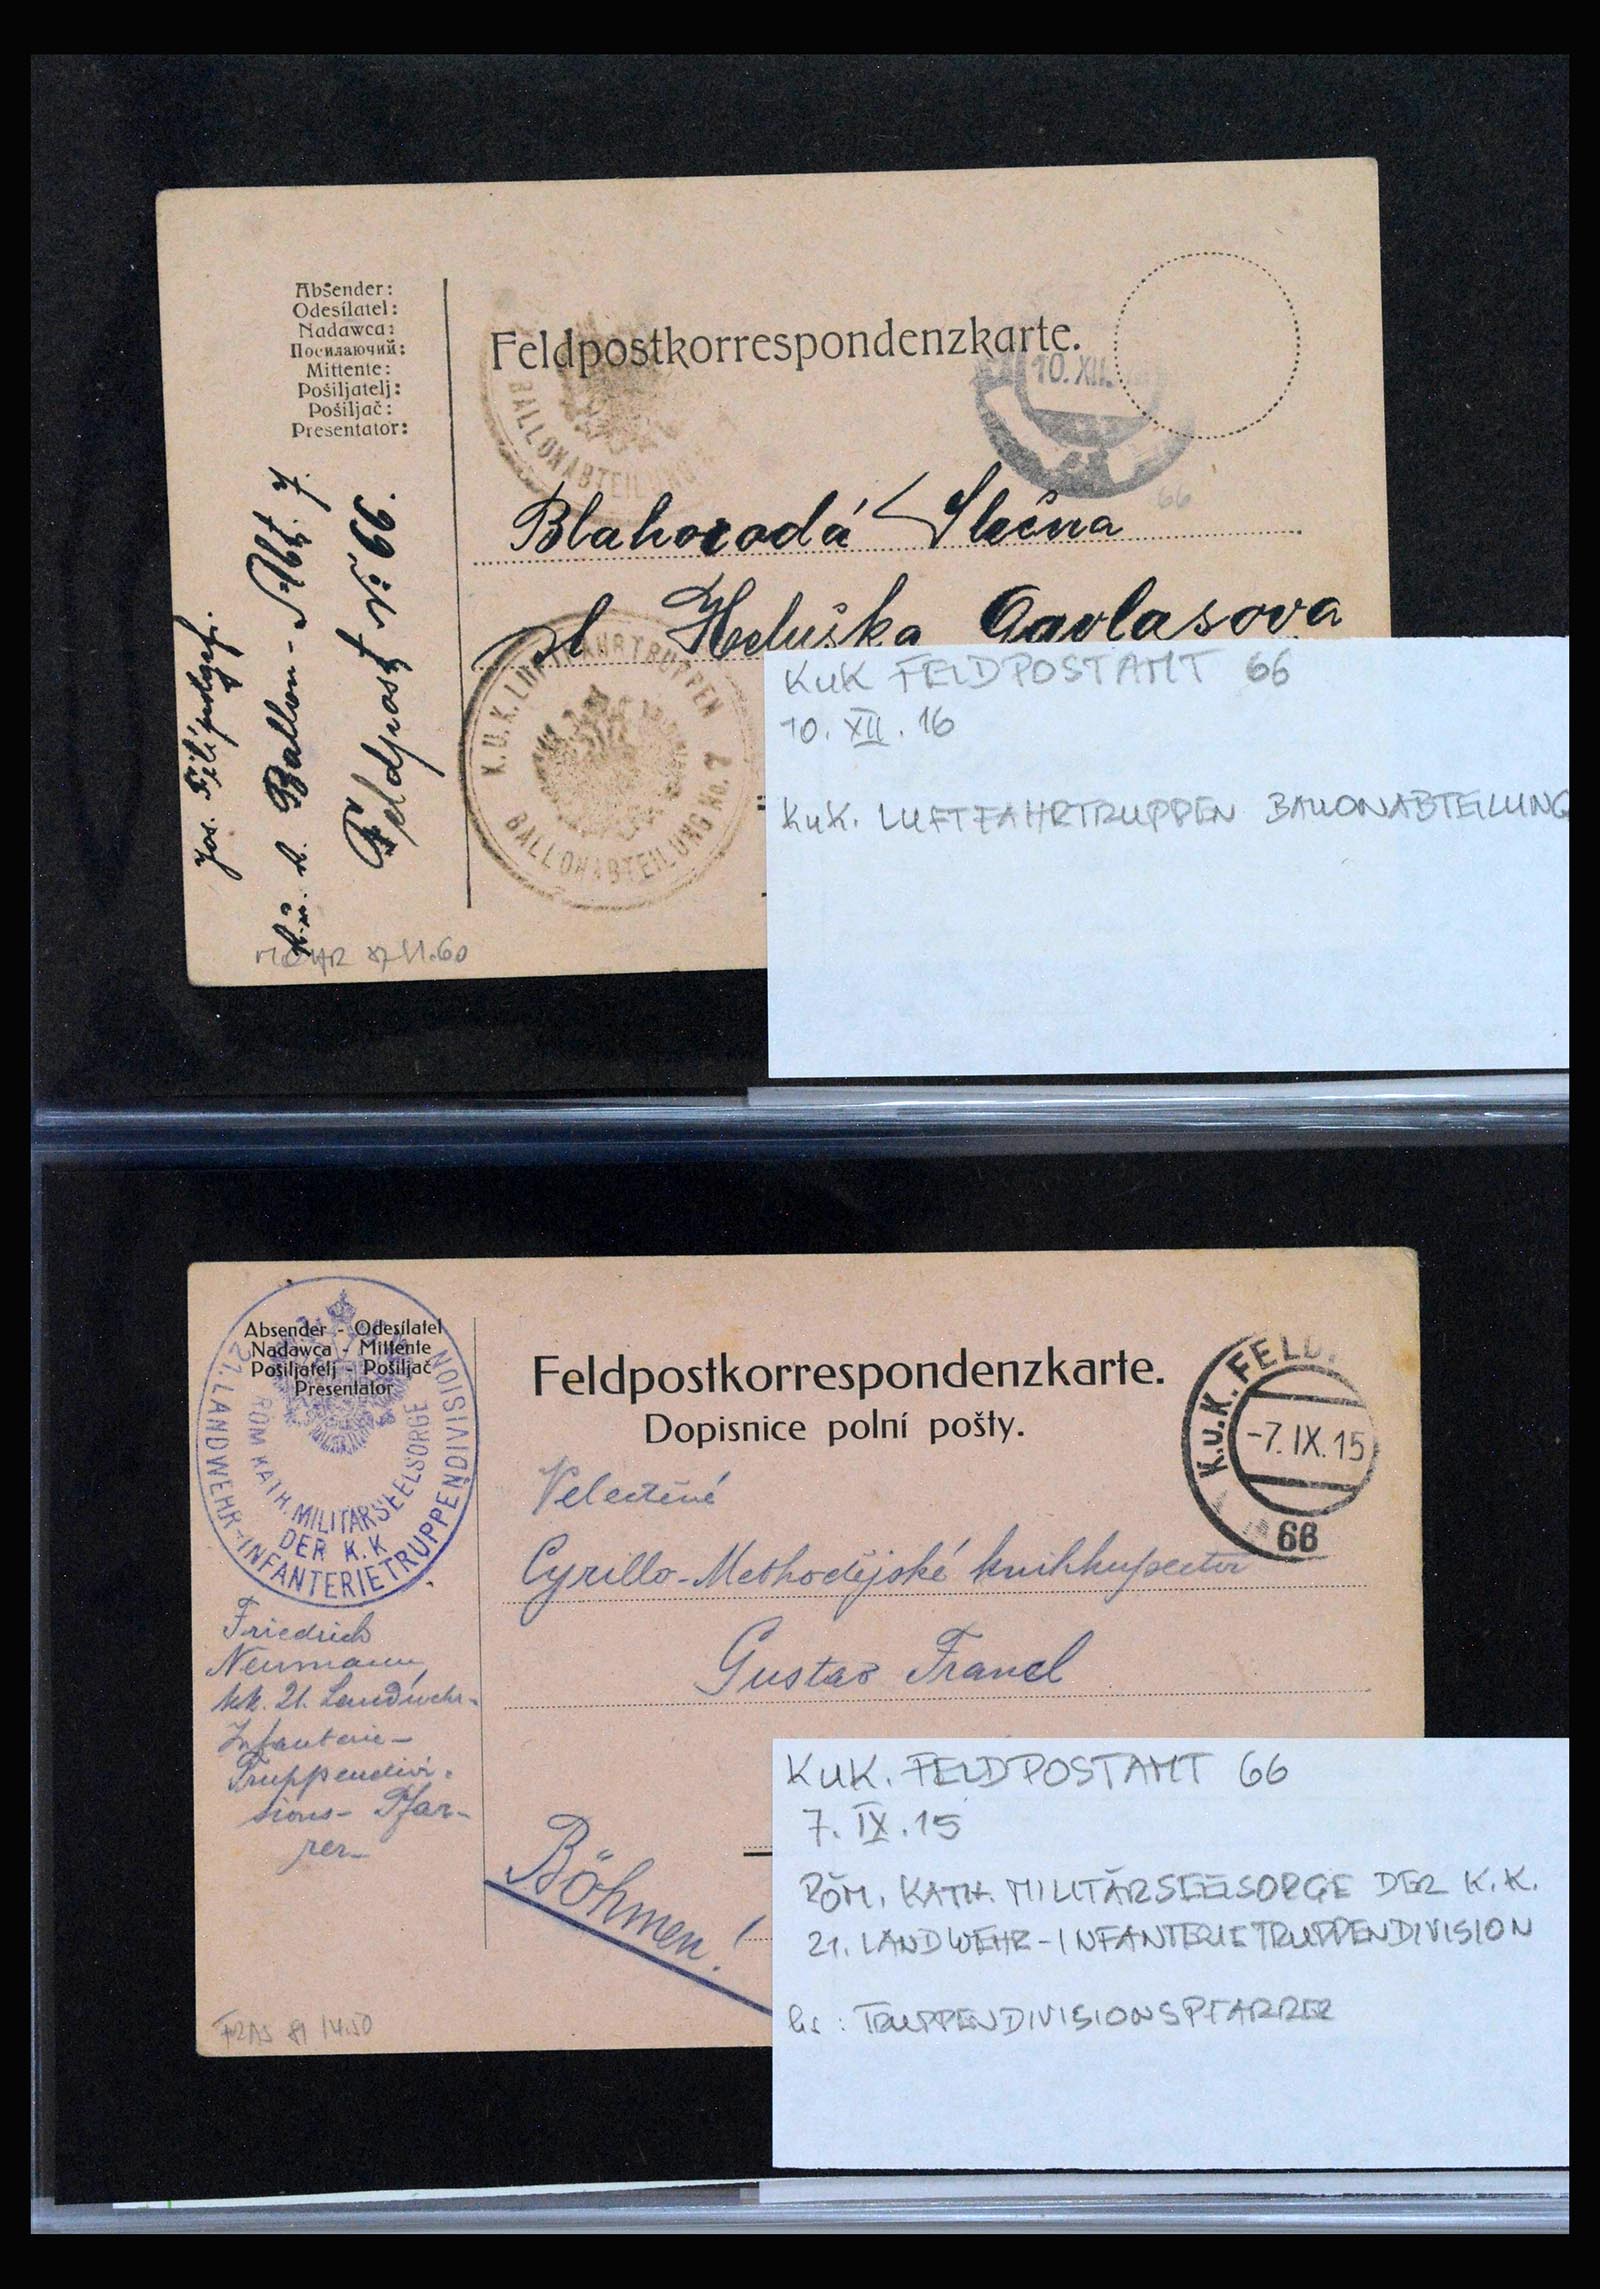 Absender:
Odesílatel:
Nadawca:
Посилаючий:
Mittente:
Pošiljatelj:
Pošiljač:
Presentator:
Feldpostkorrespondenzkarte.
BALLONABTEILUNG
10. XII.
66
Blahorodá Slečna
sl Heduška Gavlasova
Jos.
k. u. k. Ballon-Abt. 7.
Feldpost No. 66.
K.U.K. LUFTFAHRTRUPPEN
BALLONABTEILUNG No. 7
60
KuK FELDPOSTAMT 66
10. XII. 16
KuK. LUFTFAHRTRUPPEN BALLONABTEILUNG
Absender - Odesílatel
Nadawca - Mittente
Pošiljatelj - Pošiljač
Presentator
21. LANDWEHR-INFANTERIETRUPPENDIVISION
RÖM. KATH. MILITÄRSEELSORGE
DER K.K.
Feldpostkorrespondenzkarte.
Dopisnice polní pošty.
K.u.K. FELD
-7. IX. 15
66
Velectěné
Cyrillo-Methodějské knihkupectví
Gustav Francl
Friedrich
Neumann
kk. 21. Landwehr-
Infanterie-
Truppendivi-
sions- Pfar-
rer
Böhmen!
FRAS 81 14.50
KUK. FELDPOSTAMT 66
7. IX. 15
RÖM. KATH. MILITÄRSEELSORGE DER K.K.
21. LANDWEHR-INFANTERIETRUPPENDIVISION
hs: TRUPPENDIVISIONSPFARRER